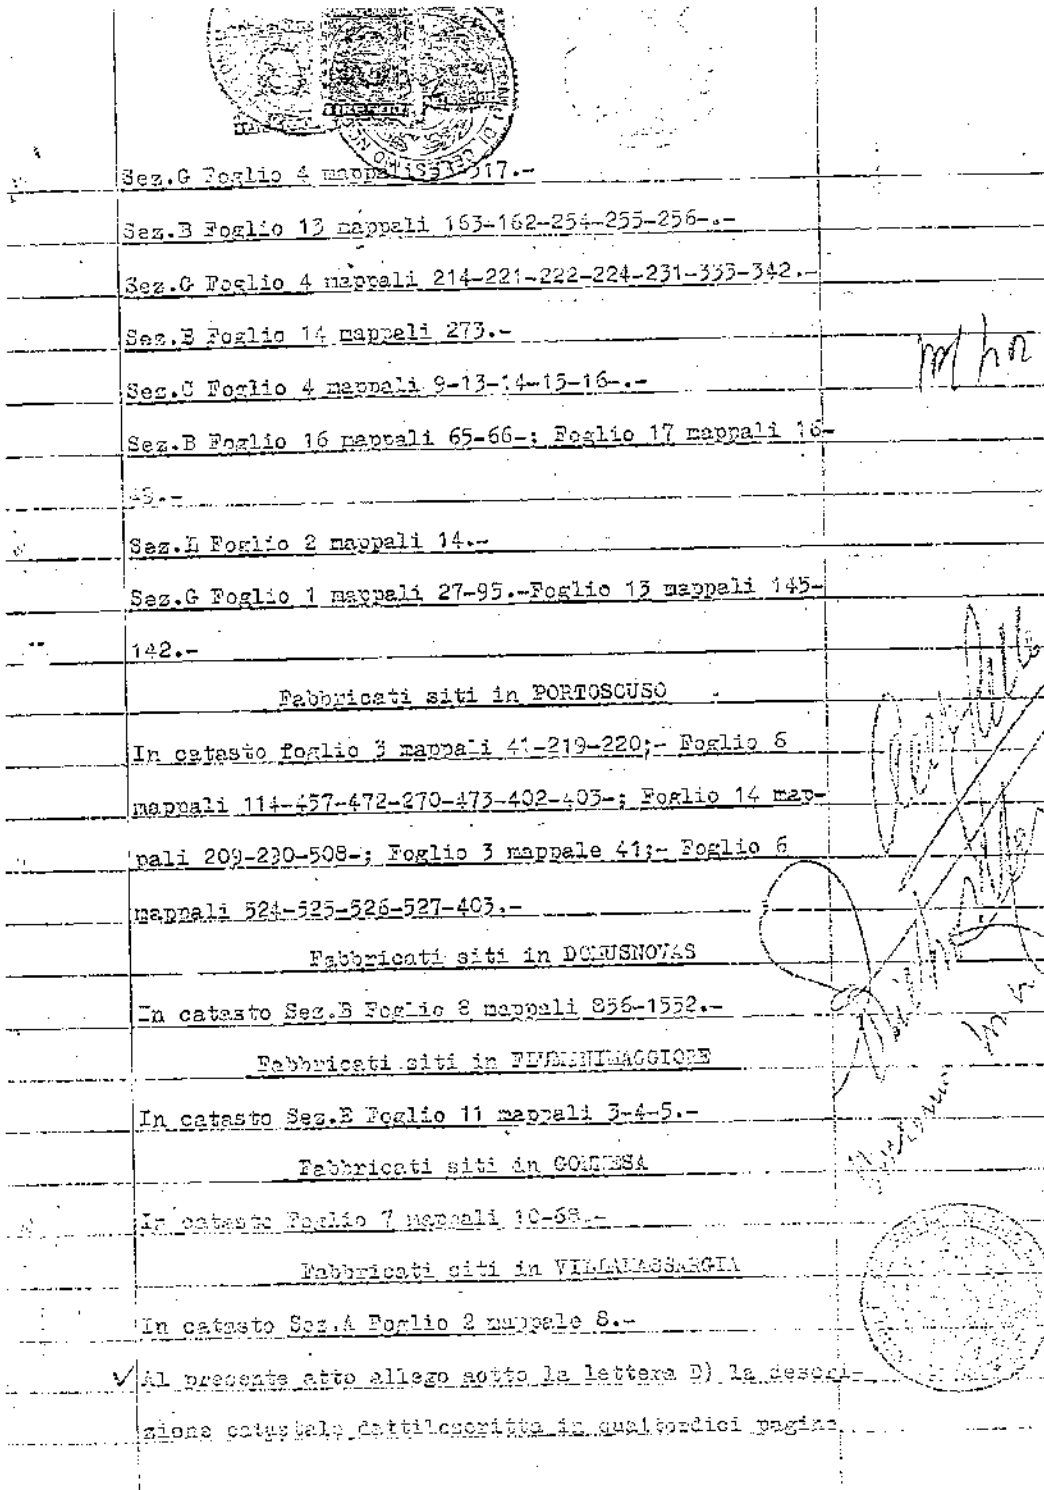 Sez.G Foglio 4 mappali 317.-
Sez.B Foglio 13 mappali 163-162-254-255-256-.-
Sez.G Foglio 4 mappali 214-221-222-224-231-333-342.-
Sez.B Foglio 14 mappali 273.-
Sez.C Foglio 4 mappali 9-13-14-15-16-.-
Sez.B Foglio 16 mappali 65-66-; Foglio 17 mappali 16-
Foglio 2 mappali 14.-
Sez.G Foglio 1 mappali 27-95.-Foglio 13 mappali 145-
142.-
Fabbricati siti in PORTOSCUSO
In catasto foglio 3 mappali 41-219-220;- Foglio 6
mappali 114-457-472-270-473-402-403-; Foglio 14 map-
pali 209-290-508-; Foglio 3 mappale 41;- Foglio 6
mappali 524-525-526-527-403.-
Fabbricati siti in DOMUSNOVAS
In catasto Sez.B Foglio 8 mappali 856-1552.-
Fabbricati siti in FLUMINIMAGGIORE
In catasto Sez.E Foglio 11 mappali 3-4-5.-
Fabbricati siti in GONNESA
In catasto Foglio 7 mappali 10-68.-
Fabbricati siti in VILLAMASSARGIA
In catasto Sez.A Foglio 2 mappale 8.-
Al presente atto allego sotto la lettera D) la descri-
zione catastale dattiloscritta in quattordici pagine